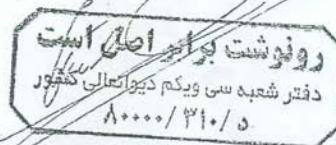 رونوشت برابر اصل است
دفتر شعبه سی ویکم دیوانعالی کشور
۸۰۰۰۰/۳۱۰/۵